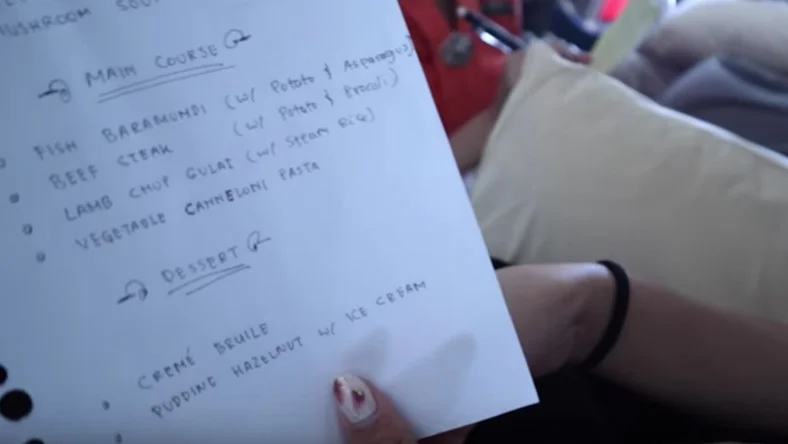 MUSHROOM SOU
MAIN COURSE
FISH BARAMUNDI (w/ Potato & Asparagus)
BEEF STEAK (w/ Potato & Brocoli)
LAMB CHOP GULAI (w/ Steam Rice)
VEGETABLE CANNELONI PASTA
DESSERT
CREMÉ BRUILE
PUDDING HAZELNUT w/ ICE CREAM